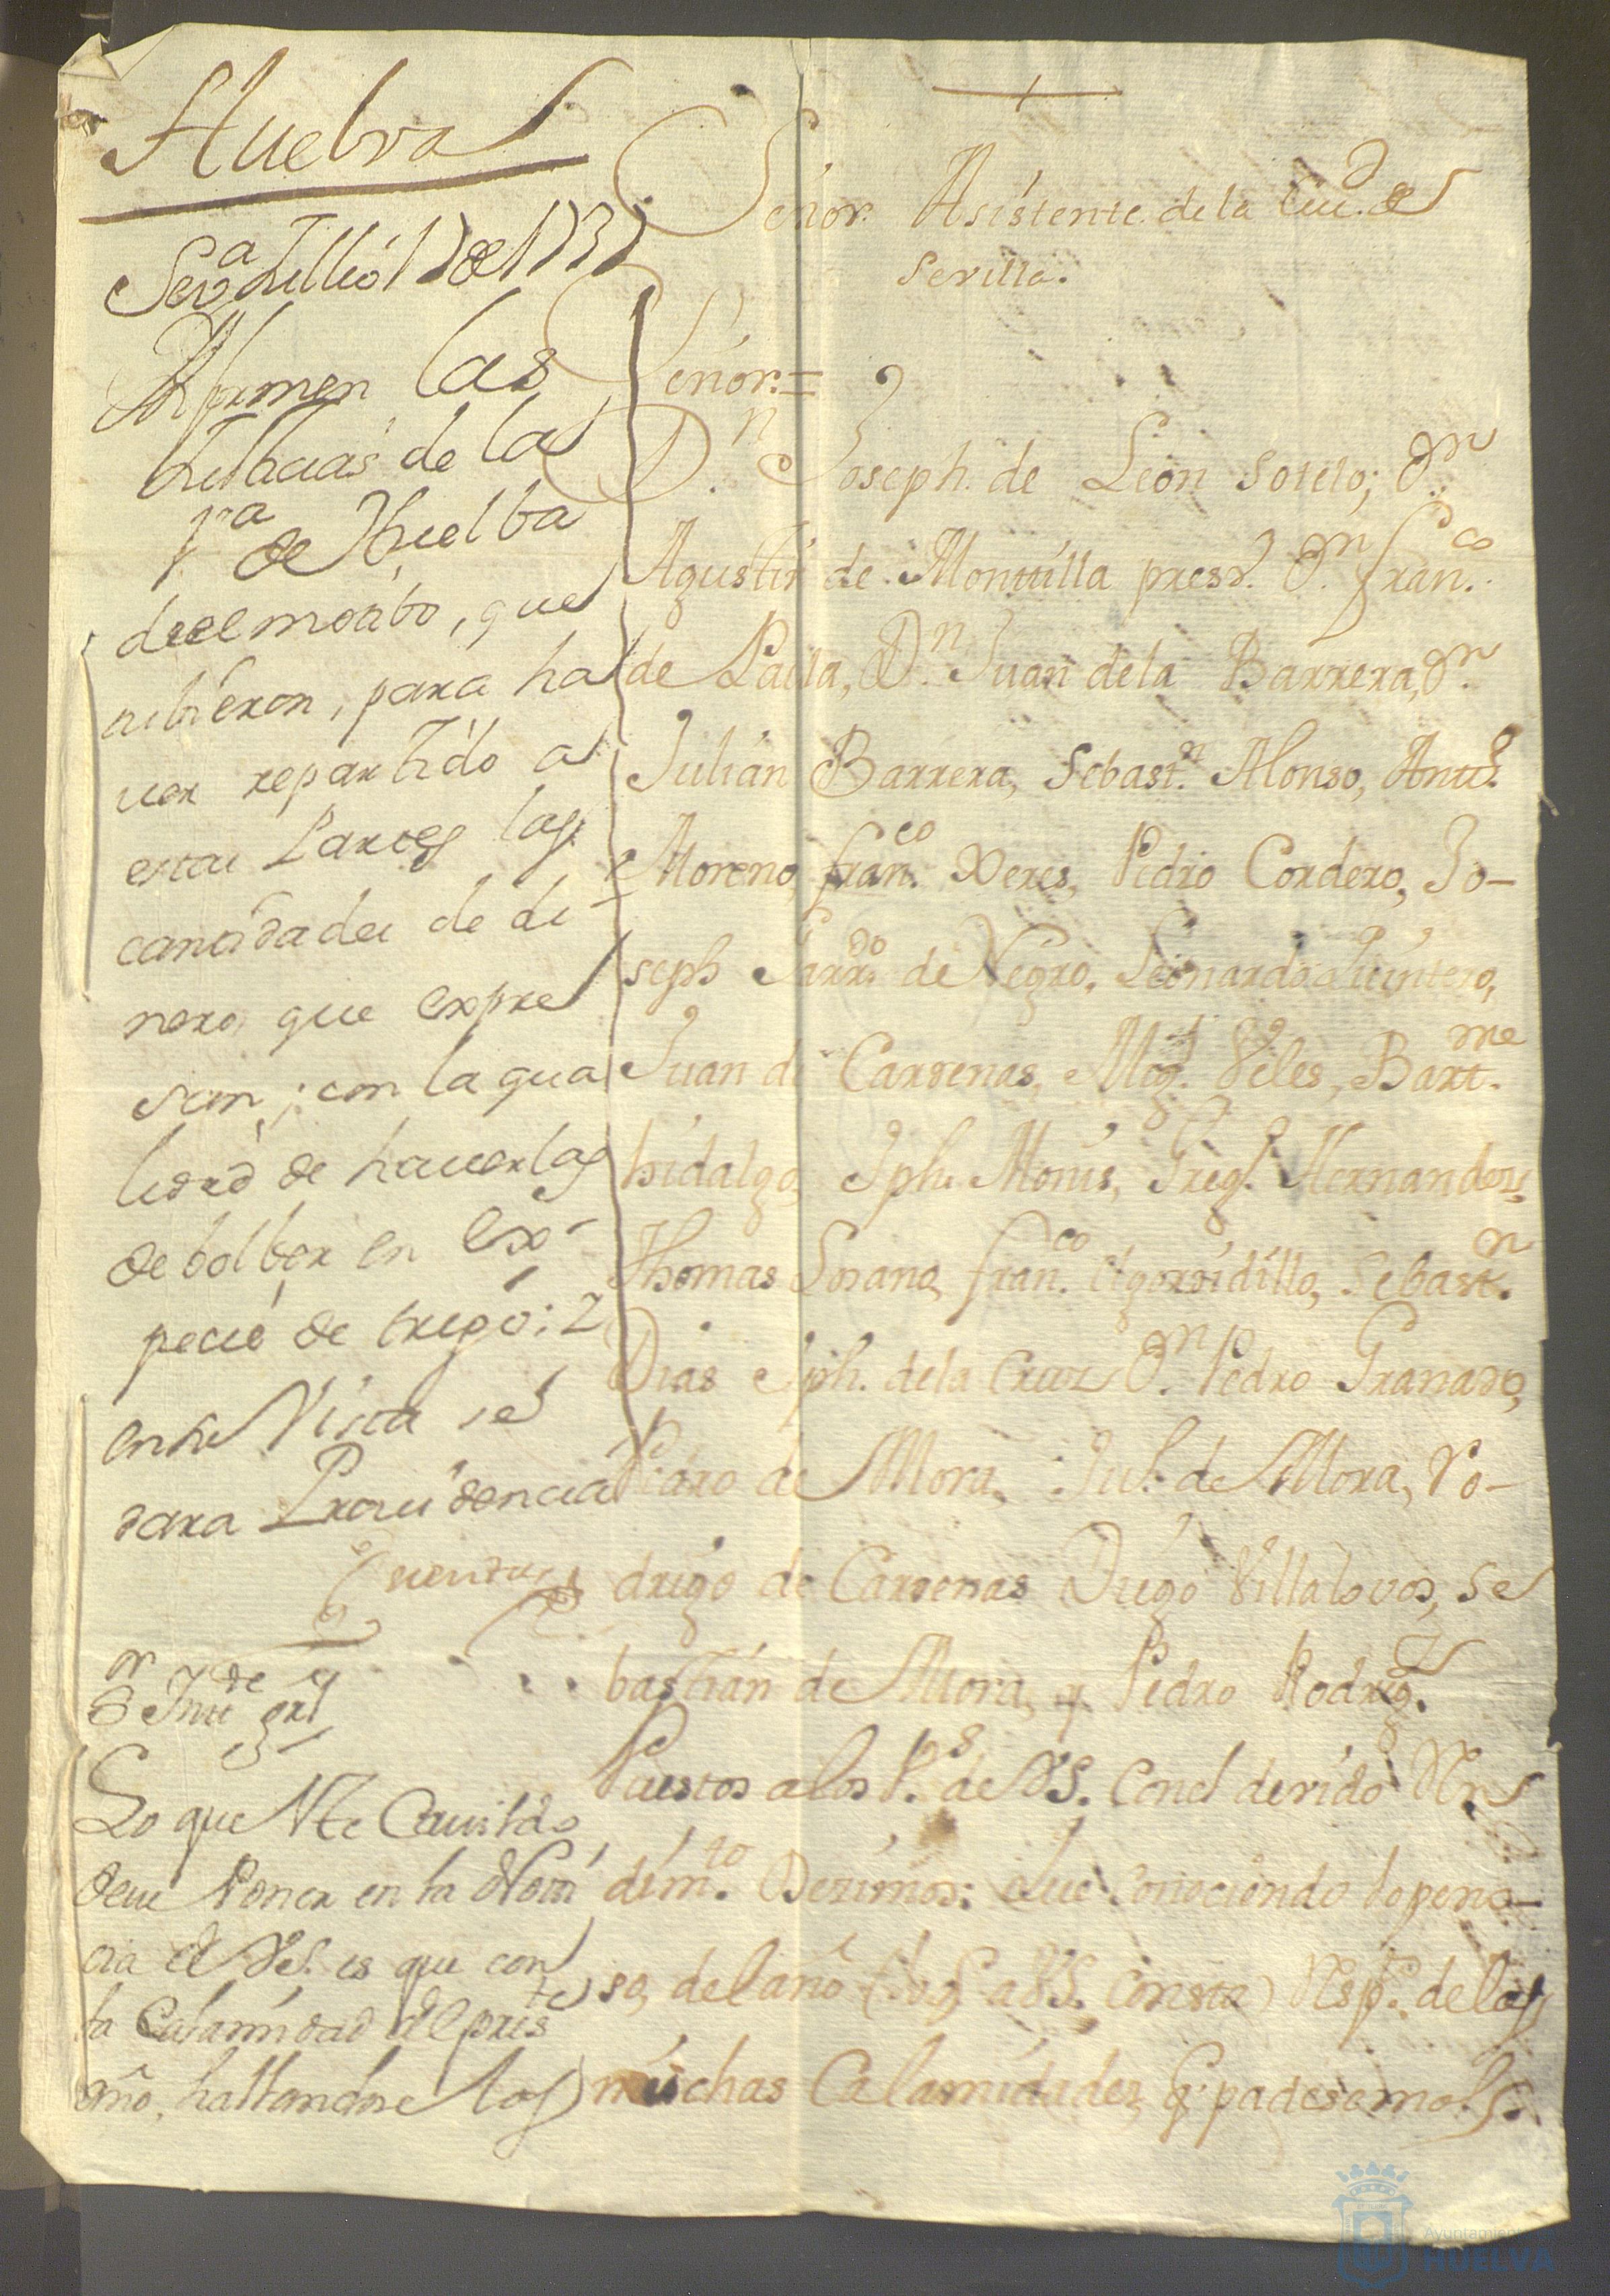 Huelva
Sev.a Jullio 17 de 1737
Ynformen las
Justicias de la
V.a de Huelba
de el motibo, que
tubieron, para ha
ver repartido a
estas Partes las
cantidades de di
nero, que expre
san; con la qua
lidad de haverlas
de bolber en Ex-
pecie de trigo; Y
en su Vista se
dara Providencia
Lo que Vte Cavildo
deve Poner en la Noti
cia de V.S. es que con
la Calamidad del pres.te
año, hallandose los
+
Señor Asistente de la Ciu.d de
Sevilla.
Señor.=
D.n Joseph. de Leon Sotelo; D.n
Agustin de Montilla presv.o D.n Fran.co
de Pa la, D.n Juan de la Barrera, D.n
Julian Barrera, Sebast.n Alonso, Antt.o
Moreno, fran.co Xeres, Pedro Cordero, Jo-
seph de Negro, Leonardo Quintero,
Juan de Cardenas, Mig.l Veles, Bart.me
hidalgo, Jph. Monis, Greg.o Hernandes,
Thomas Losano, fran.co el gordidillo, Sebast.n
Dias Jph. de la Cruz D.n Pedro Granado,
Pedro de Mora, Ju.o de Mora, Ro-
drigo de Cardenas Diego Villalovos, Se
bastian de Mora, y Pedro Rodrig.z
Puestos a los P.s de V.S. con el devido Ren
dim.to Dezimos: Que Conociendo lo peno-
so, del año (lo q. a V.S. consta) Resp.to de las
muchas Calamidades, q. padesemos.